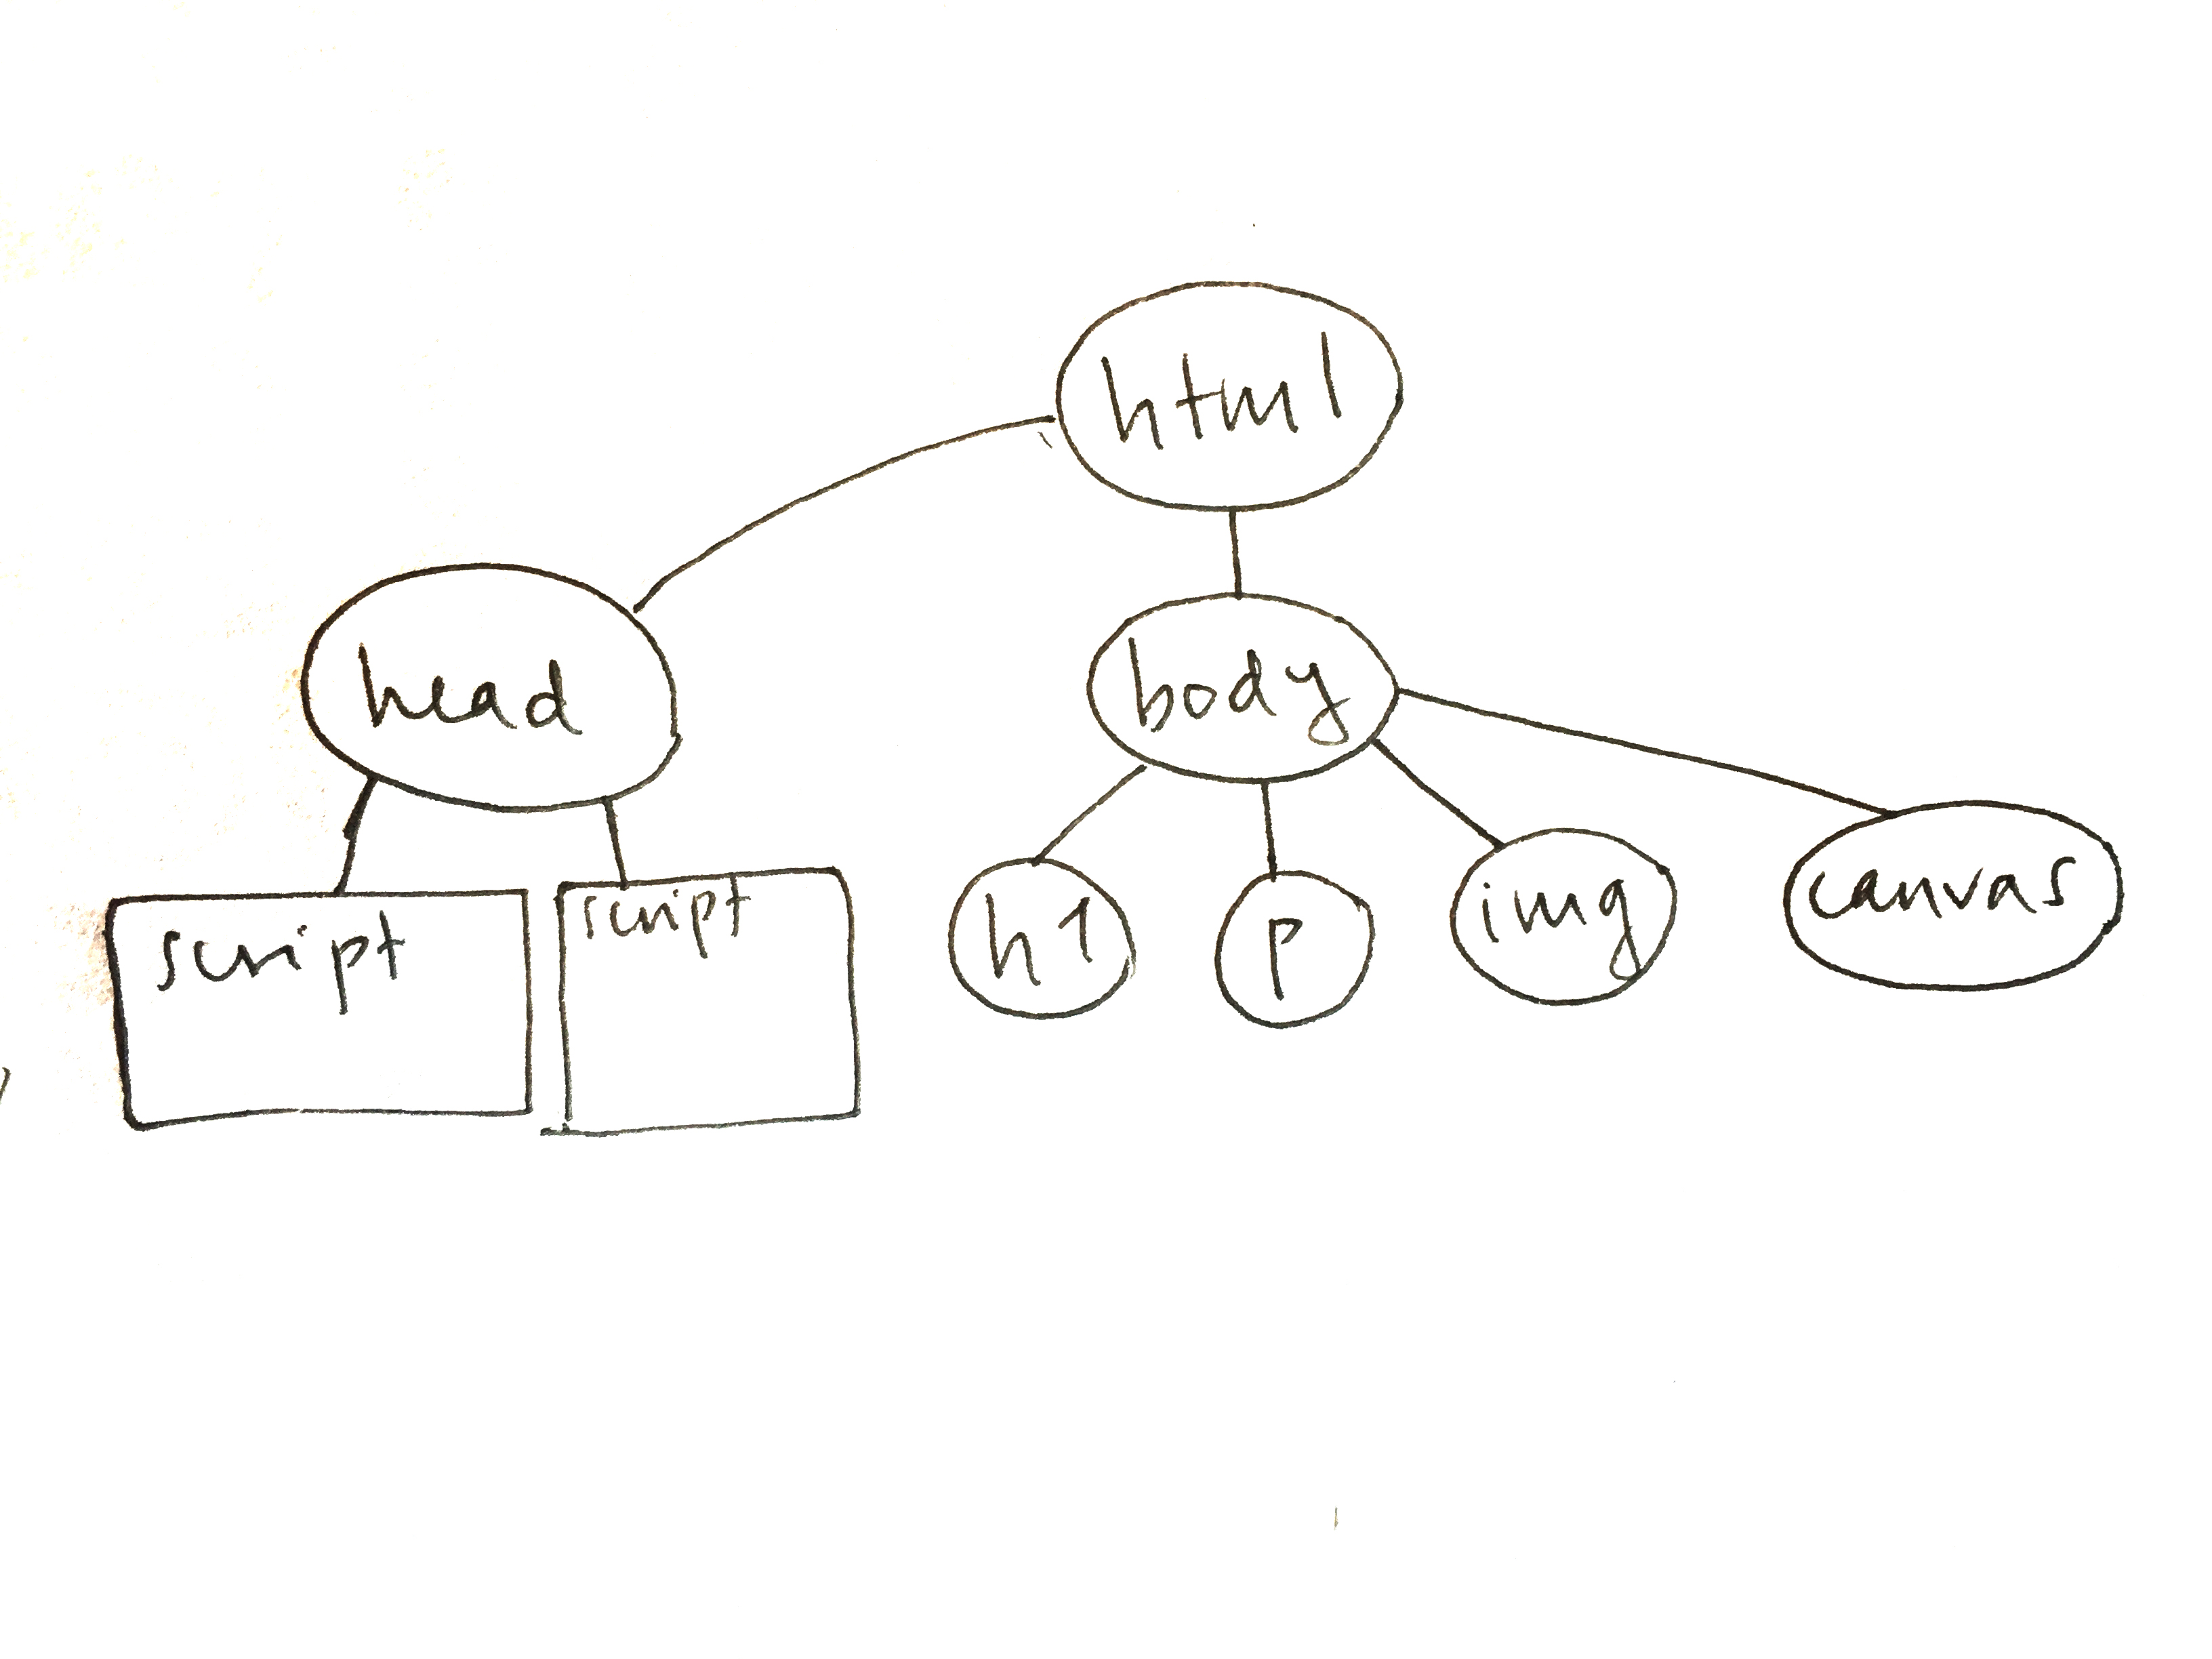 html
head
body
script
script
h1
p
img
canvas